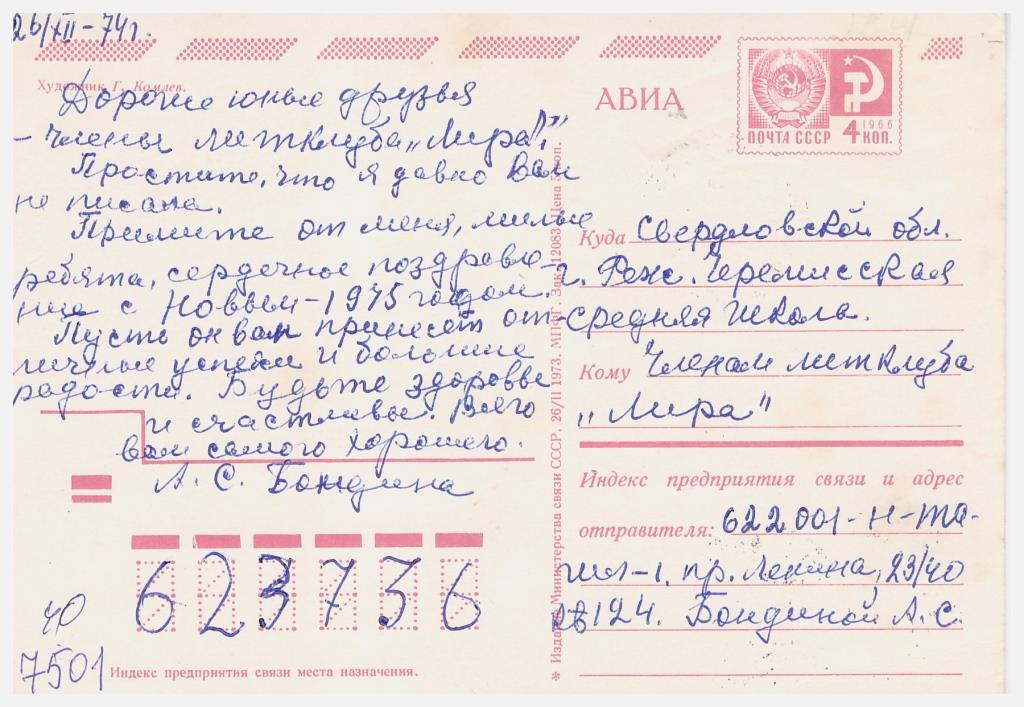 26/XII-74г.
Художник Г. Комлев.
Дорогие юные друзья
- члены литклуба „Лира"!
Простите, что я давно Вам
не писала.
Примите от меня, милые
ребята, сердечное поздравле-
ние с Новым-1975 годом.
Пусть он вам принесёт от-
личные успехи и большие
радости. Будьте здоровы
и счастливы. Всего
вам самого хорошего.
А. С. Бондина
623736
40
7501
Индекс предприятия связи места назначения.
* Издание Министерства связи СССР. 26/II 1973. МПФГ. Зак. 12083. Цена 5 коп.
АВИА
ПОЧТА СССР
1966
4 КОП.
Куда Свердловской обл.
г. Реж. Черемисская
средняя школа.
Кому Членам литклуба
„Лира"
Индекс предприятия связи и адрес
отправителя: 622001-Н-Та-
гил-1, пр. Ленина, 23/40
кв 124. Бондиной А. С.